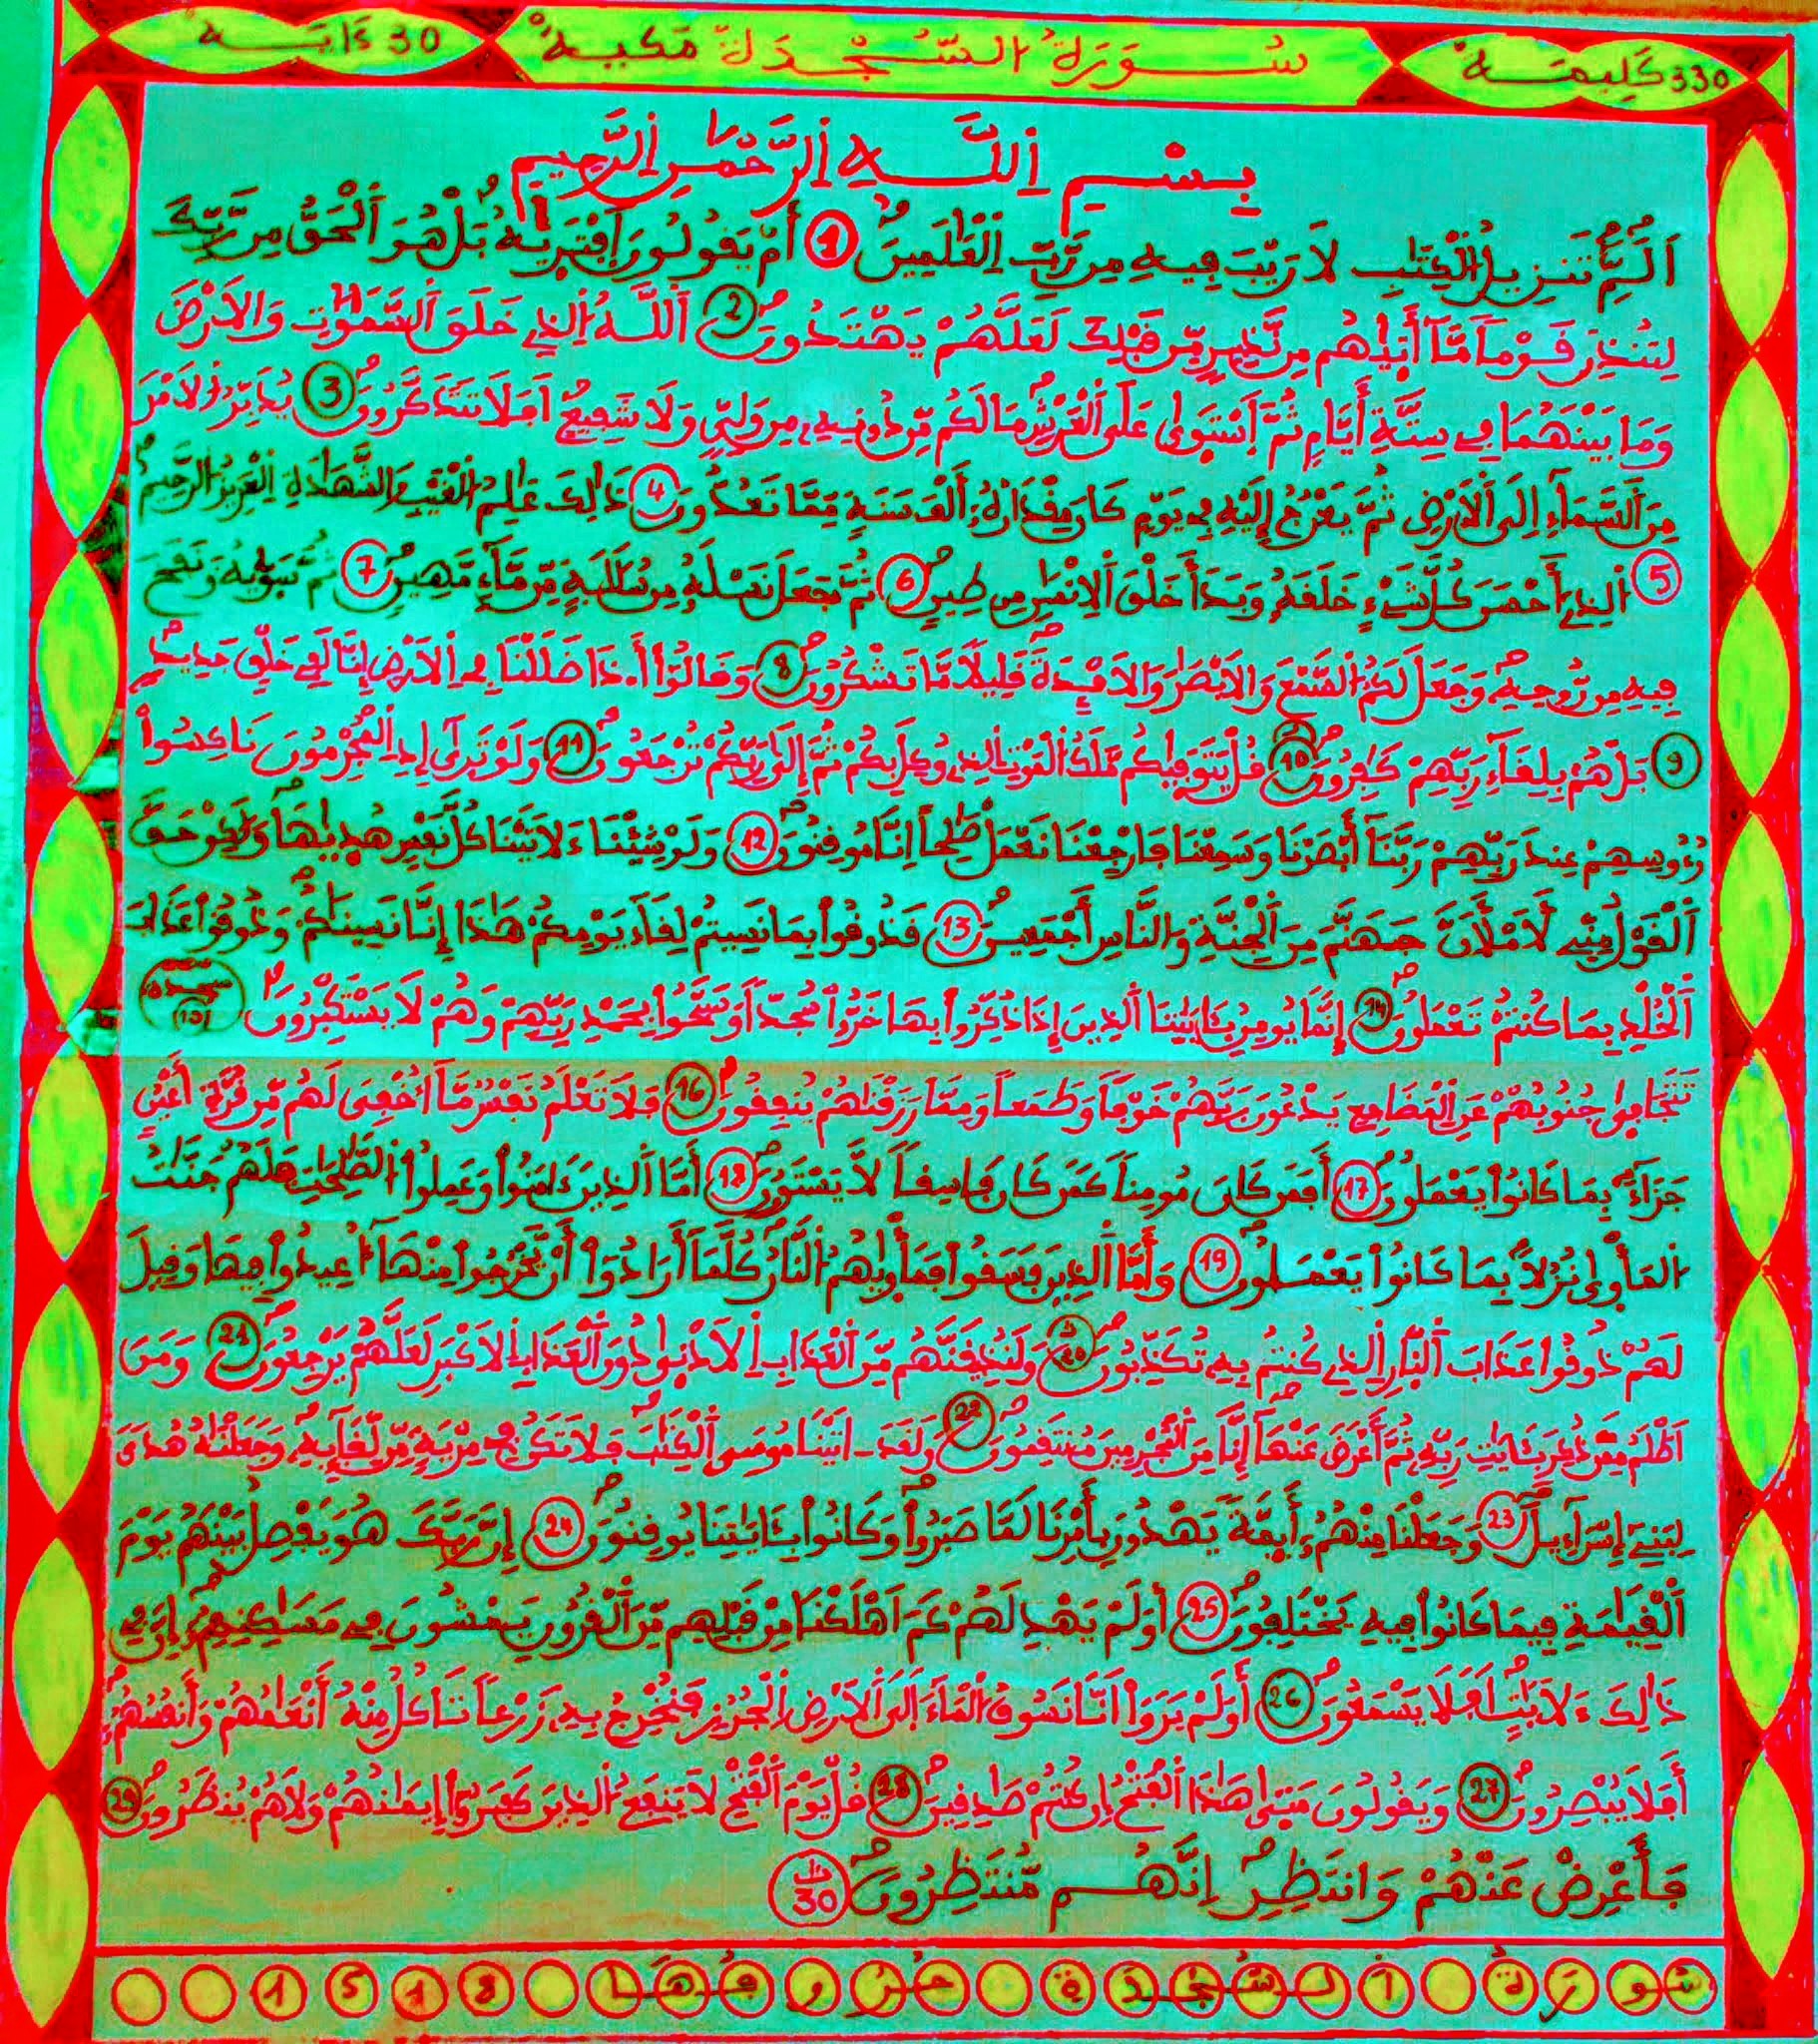 330 كليمة سورة السجدة مكية 30 ءاية
بسم الله الرحمن الرحيم
الم تنزيل الكتب لا ريب فيه من رب العلمين 1 أم يقولون افتريه بل هو الحق من ربك
لتنذر قوما ما أتيهم من نذير من قبلك لعلهم يهتدون 2 الله الذي خلق السموت والارض
وما بينهما في ستة أيام ثم استوى على العرش ما لكم من دونه من ولي ولا شفيع افلا تتذكرون 3 يدبر الامر
من السماء الى الارض ثم يعرج إليه في يوم كان مقداره ألف سنة مما تعدون 4 ذلك علم الغيب والشهدة العزيز الرحيم
5 الذي أحسن كل شيء خلقه وبدأ خلق الانسن من طين 6 ثم جعل نسله من سللة من ماء مهين 7 ثم سويه ونفخ
فيه من روحه وجعل لكم السمع والابصر والافـدة قليلا ما تشكرون 8 وقالوا أ.ذا ضللنا في الارض إنا لفي خلق جديد
9 بل هم بلقاء ربهم كفرون 10 قل يتوفيكم ملك الموت الذي وكل بكم ثم إلى ربكم ترجعون 11 ولو ترى إذ المجرمون ناكسوا
رءوسهم عند ربهم ربنا أبصرنا وسمعنا فارجعنا نعمل صلحا إنا موقنون 12 ولو شئنا ءلاتينا كل نفس هديها ولكن حق
القول مني لأملأن جهنم من الجنة والناس أجمعين 13 فذوقوا بما نسيتم لقاء يومكم هذا إنا نسينكم وذوقوا عذاب
الخلد بما كنتم تعملون 14 إنما يومن بـايتنا الذين إذا ذكروا بها خروا سجدا وسبحوا بحمد ربهم وهم لا يستكبرون سجدة (15)
تتجافى جنوبهم عن المضاجع يدعون ربهم خوفا وطمعا ومما رزقنهم ينفقون 16 فلا تعلم نفس ما أخفي لهم من قرة أعين
جزاء بما كانوا يعملون 17 أفمن كان مومنا كمن كان فاسقا لا يستون 18 أما الذين ءامنوا وعملوا الصلحت فلهم جنت
المأوى نزلا بما كانوا يعملون 19 وأما الذين فسقوا فمأويهم النار كلما أرادوا أن يخرجوا منها أعيدوا فيها وقيل
لهم ذوقوا عذاب النار الذي كنتم به تكذبون 20 ولنذيقنهم من العذاب الادنى دون العذاب الاكبر لعلهم يرجعون 21 ومن
اظلم ممن ذكر بـايت ربه ثم أعرض عنها إنا من المجرمين منتقمون 22 ولقد ـاتينا موسى الكتب فلا تكن في مرية من لقايه وجعلنه هدى
لبني إسراءيل 23 وجعلنا منهم أيمة يهدون بأمرنا لما صبروا وكانوا بـايتنا يوقنون 24 إن ربك هو يفصل بينهم يوم
القيمة فيما كانوا فيه يختلفون 25 أولم يهد لهم كم اهلكنا من قبلهم من القرون يمشون في مسكنهم إن في
ذلك ءلايت افلا يسمعون 26 أولم يروا انا نسوق الماء الى الارض الجرز فنخرج به زرعا تاكل منه أنعمهم وأنفسهم
أفلا يبصرون 27 ويقولون متى هذا الفتح إن كنتم صدقين 28 قل يوم الفتح لا ينفع الذين كفروا إيمنهم ولا هم ينظرون 29
فأعرض عنهم وانتظر إنهم منتظرون 30
سورة السجدة حروفها 1518